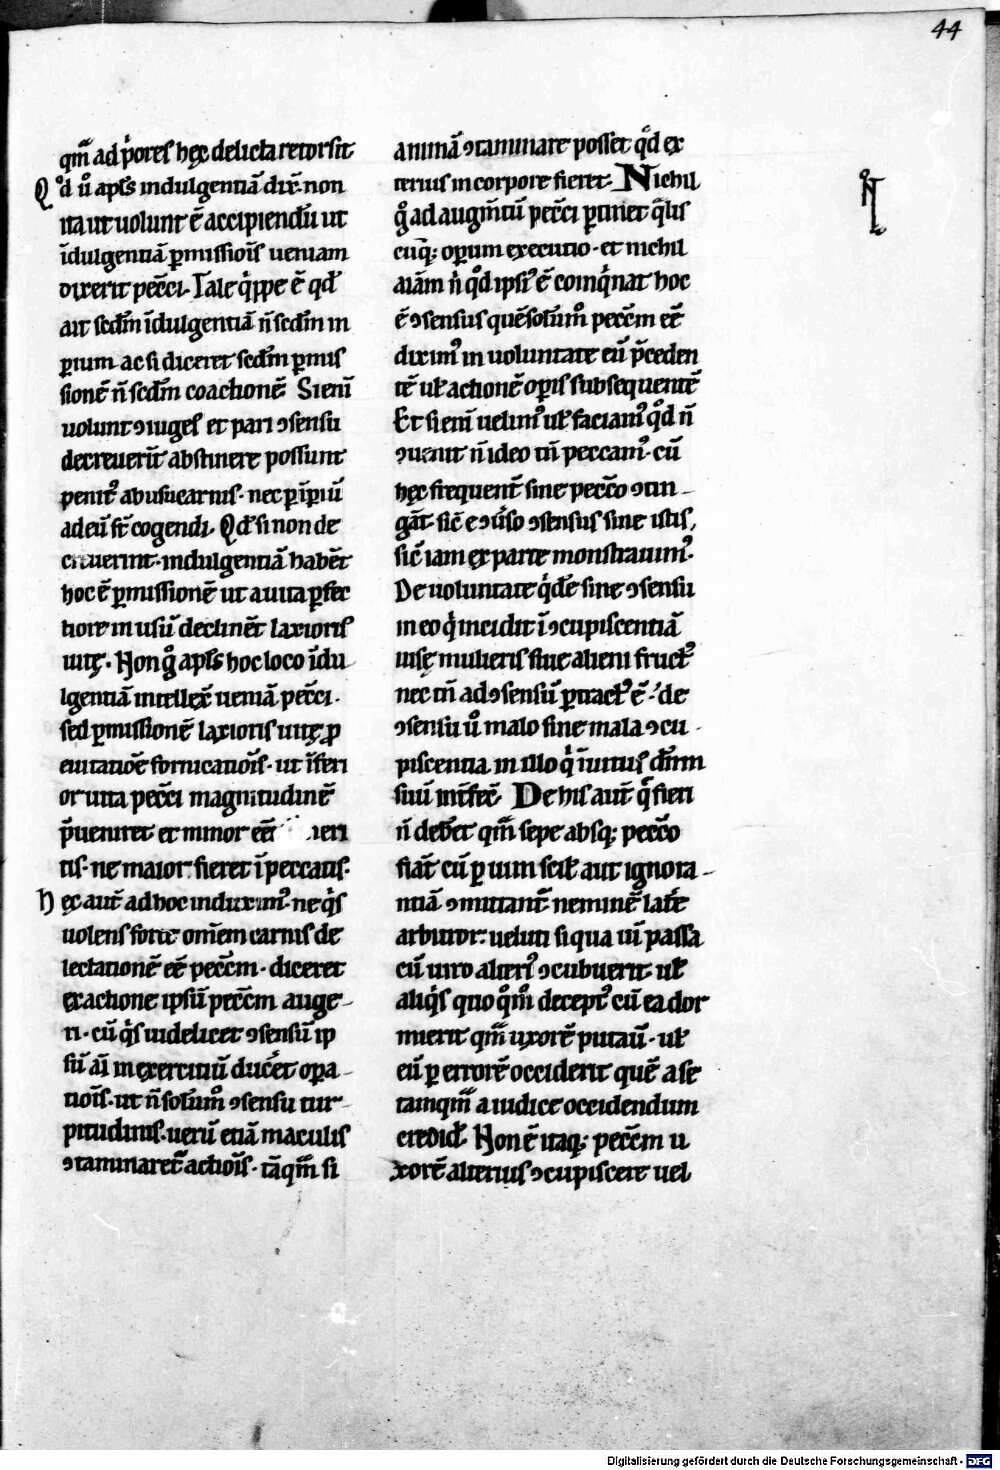 44
qm̄ ad p̍ores hęc delicta retorsit
Qd ů apłs indulgentiā dix̄. non
ita ut uolunt ē accipiendū ut
īdulgentiā ꝑmissiōis ueniam
dixerit pecc̄i. Tale q̍ppe ē qđ
ait scđm īdulgentiā ñ scđm im
ꝑium ac si diceret scđm ꝑmis
sionē ñ scđm coactionē. Si enī
uolunt ꝯiuges et pari ꝯsensu
decreuer̄t abstinere possunt
penit᷒ ab usu carnis. nec ꝑ īꝑiū
ad eū st̄ cogendi. Qđ si non de
creuerint. indulgentiā habēt
hoc ē ꝑmissionē ut a uita ꝑfec
tiore in usū declinēt laxioris
uitę. Non gͦ apłs hoc loco īdu
lgentiā intellex̄ ueniā pecc̄i.
sed ꝑmissionē laxioris uitę ꝓ
euitatiōe fornicatiōis. ut īferi
or uita pecc̄i magnitudinē
p̄ueniret et minor eēt ieri
tis. ne maior fieret ī peccatis.
Hęc aut̄ ad hoc indux̄im᷒. ne q̍s
uolens forte om̄em carnis de
lectationē eē pecc̄m. diceret
ex actione ipsū pecc̄m auge-
ri. cū q̍s uidelicet ꝯsensū ip
sū aī in exercitiū duc̄et oꝑa-
tiōis. ut ñ solūmͦ ꝯsensu tur-
pitudinis. uerū etiā maculis
ꝯtaminaret̄ actiōis. tāqm̄ si
animā ꝯtaminare posset qͦd ex
terius in corpore fieret. Nichil
gͦ ad augm̄tū pecc̄i ꝑtinet q̄lis
cūq̄; oꝑum executio. et nichil
aīam n̍ qͦd ipsi᷒ ē coinq̍nat hoc
ē ꝯsensus quē solūmͦ pecc̄m eē
dixim᷒ in uoluntate eū p̄ceden
tē uł actionē oꝑis subsequentē
Et si enī uelim᷒ uł faciam᷒ qͦd ñ
ꝯuenit ñ ideo tn̄ peccam᷒. cū
hęc frequent̄ sine pecc̄o ꝯtin-
gāt. sic̄ e ꝯůso ꝯsensus sine istis,
sic̄ iam ex parte monstrauim᷒.
De uoluntate q̍dē sine ꝯsensu
in eo q̍ incidit ī ꝯcupiscentiā
uisę mulieris siue alieni fruct᷒
nec tn̄ ad ꝯsensū ꝑtract᷒ ē. de
ꝯsensu ů malo sine mala ꝯcu-
piscentia in illo q̍ īuitus dn̄m
suū int̄fec̄. De his aut̄ q̄ fieri
ñ debēt qm̄ sepe absq; pecc̄o
fiāt cū ꝑ uim scił aut ignora-
ntiā ꝯmittant̄ neminē lat̄e
arbitror. ueluti si qua uī passa
cū uiro alteri᷒ ꝯcubuerit uł
aliq̍s quoqͦmͦ decept᷒ cū ea dor
mierit qm̄ uxorē putauī. uł
eū ꝑ errorē occiderit quē a se
tamqm̄ a iudice occidendum
credid̄. Non ē itaq; pecc̄m u
xorē alterius ꝯcupiscere uel
Digitalisierung gefördert durch die Deutsche Forschungsgemeinschaft - DFG